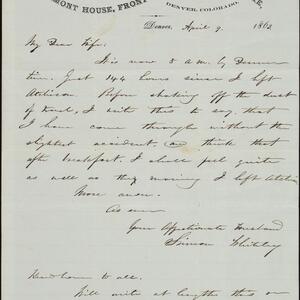 MONT HOUSE, FRONT
DENVER, COLORADO.
Denver, April 9. 1862
My Dear Wife.
It is now 8 a.m. by Denver
time. Just 144 hours since I left
Atchison. Before shaking off the dust
of travel, I write this to say, that
I have come through without the
slightest accident, and think that
after breakfast, I shall feel quite
as well as the morning I left Atchison
More anon.
As ever
Your Affectionate Husband
Simeon Whiteley
to all.
Will write at length this or